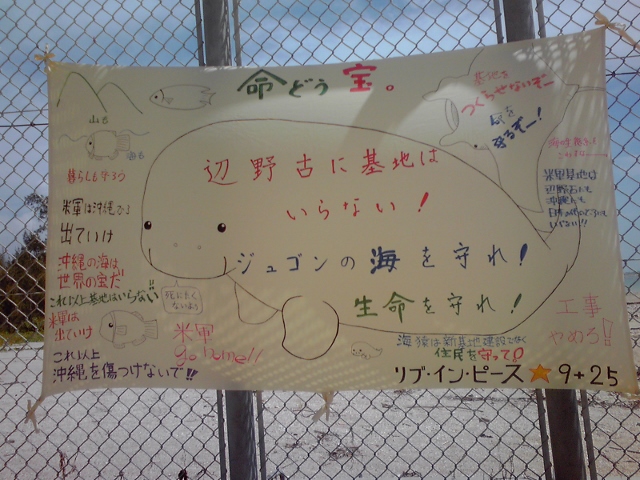 命どぅ宝。
山も
海も
暮らしも守ろう
米軍は沖縄から
出ていけ
沖縄の海は
世界の宝だ
これ以上基地はいらない!!
米軍は
出ていけ
これ以上
沖縄を傷つけないで!!
辺野古に基地は
いらない!
ジュゴンの海を守れ!
生命を守れ!
死にたく
ないよう
米軍
go home!!
基地を
つくらせないぞー
守るぞー!
米軍基地は
辺野古にも
沖縄にも
いらない!!
工事
やめろ!!
海猿は新基地建設でなく
住民を守って!
リブ・イン・ピース★9+25